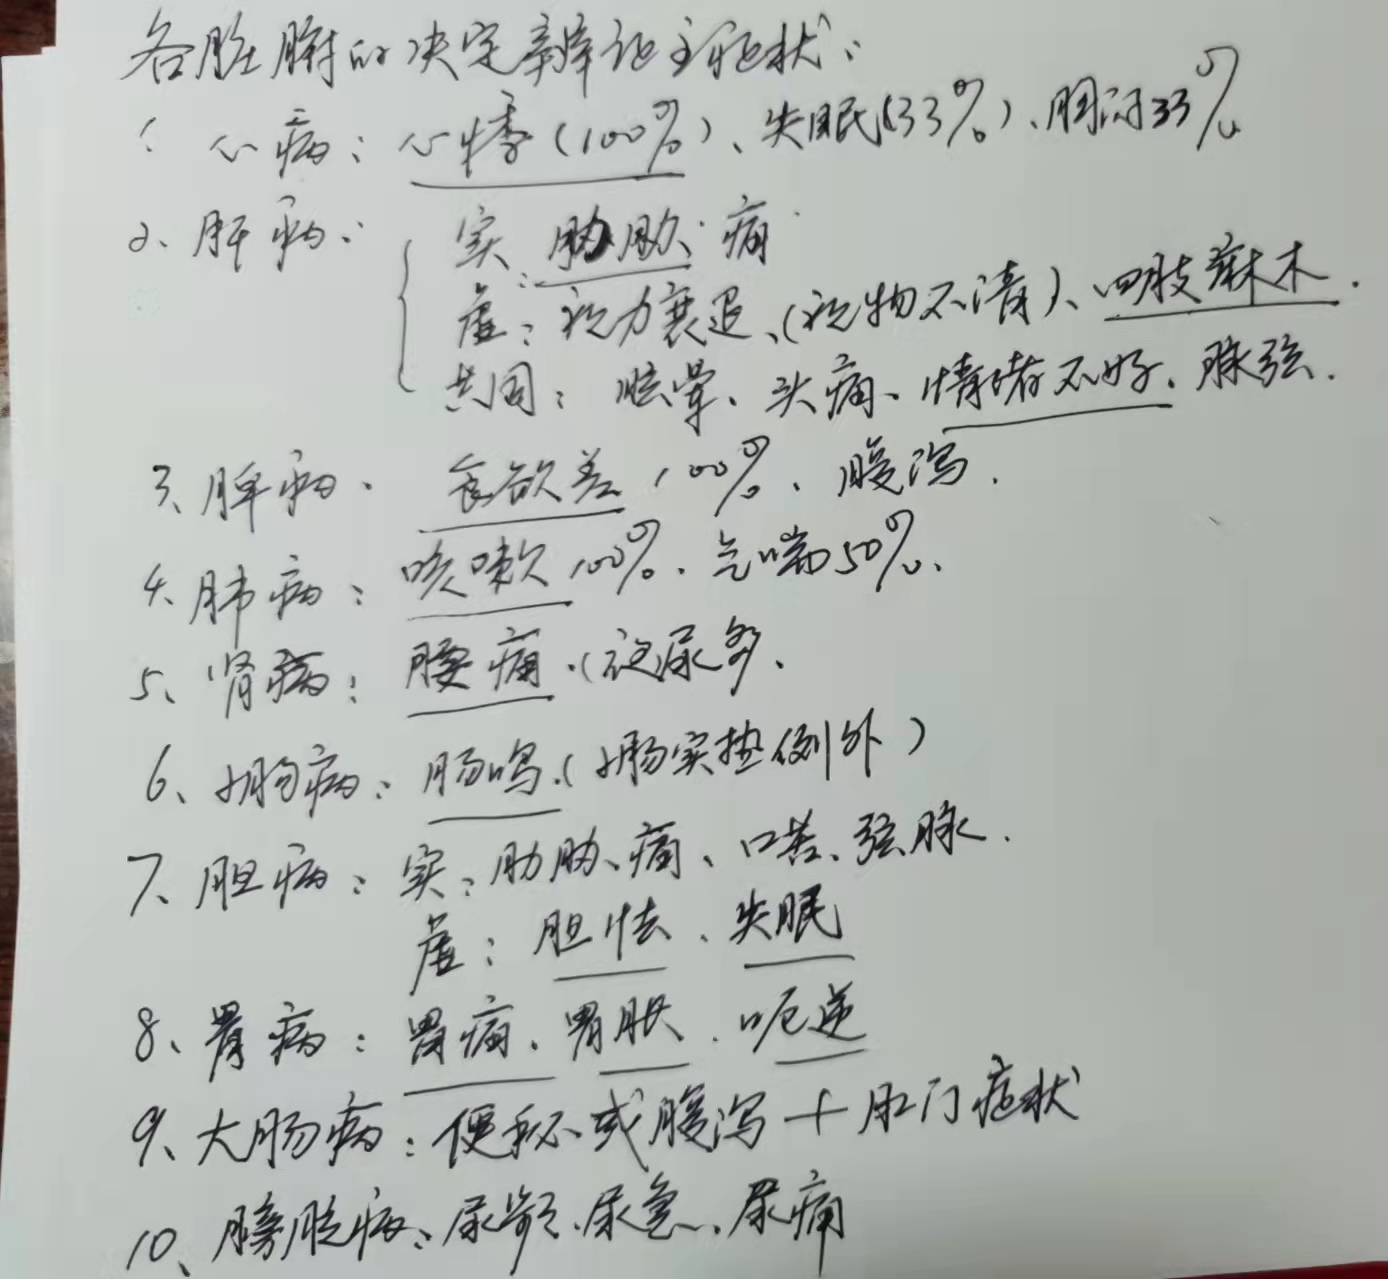 各脏腑的决定辨证主症状：
1. 心病：心悸（100%）、失眠（33%）、胸闷33%
2、肝病： 实：胁肋痛
虚：视力衰退、（视物不清）、四肢麻木.
共同：眩晕、头痛、情绪不好、脉弦.
3、脾病. 食欲差100%、腹泻.
4、肺病：咳嗽100%、气喘50%.
5、肾病：腰痛.（夜尿多.
6、小肠病：肠鸣.（小肠实热例外）
7、胆病：实：肋胁痛、口苦、弦脉.
虚：胆怯、失眠
8、胃病：胃痛、胃胀、呃逆
9、大肠病：便秘或腹泻＋肛门症状
10、膀胱病：尿频、尿急、尿痛